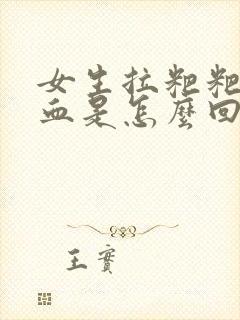 女生拉粑粑
血是怎麼回
王實